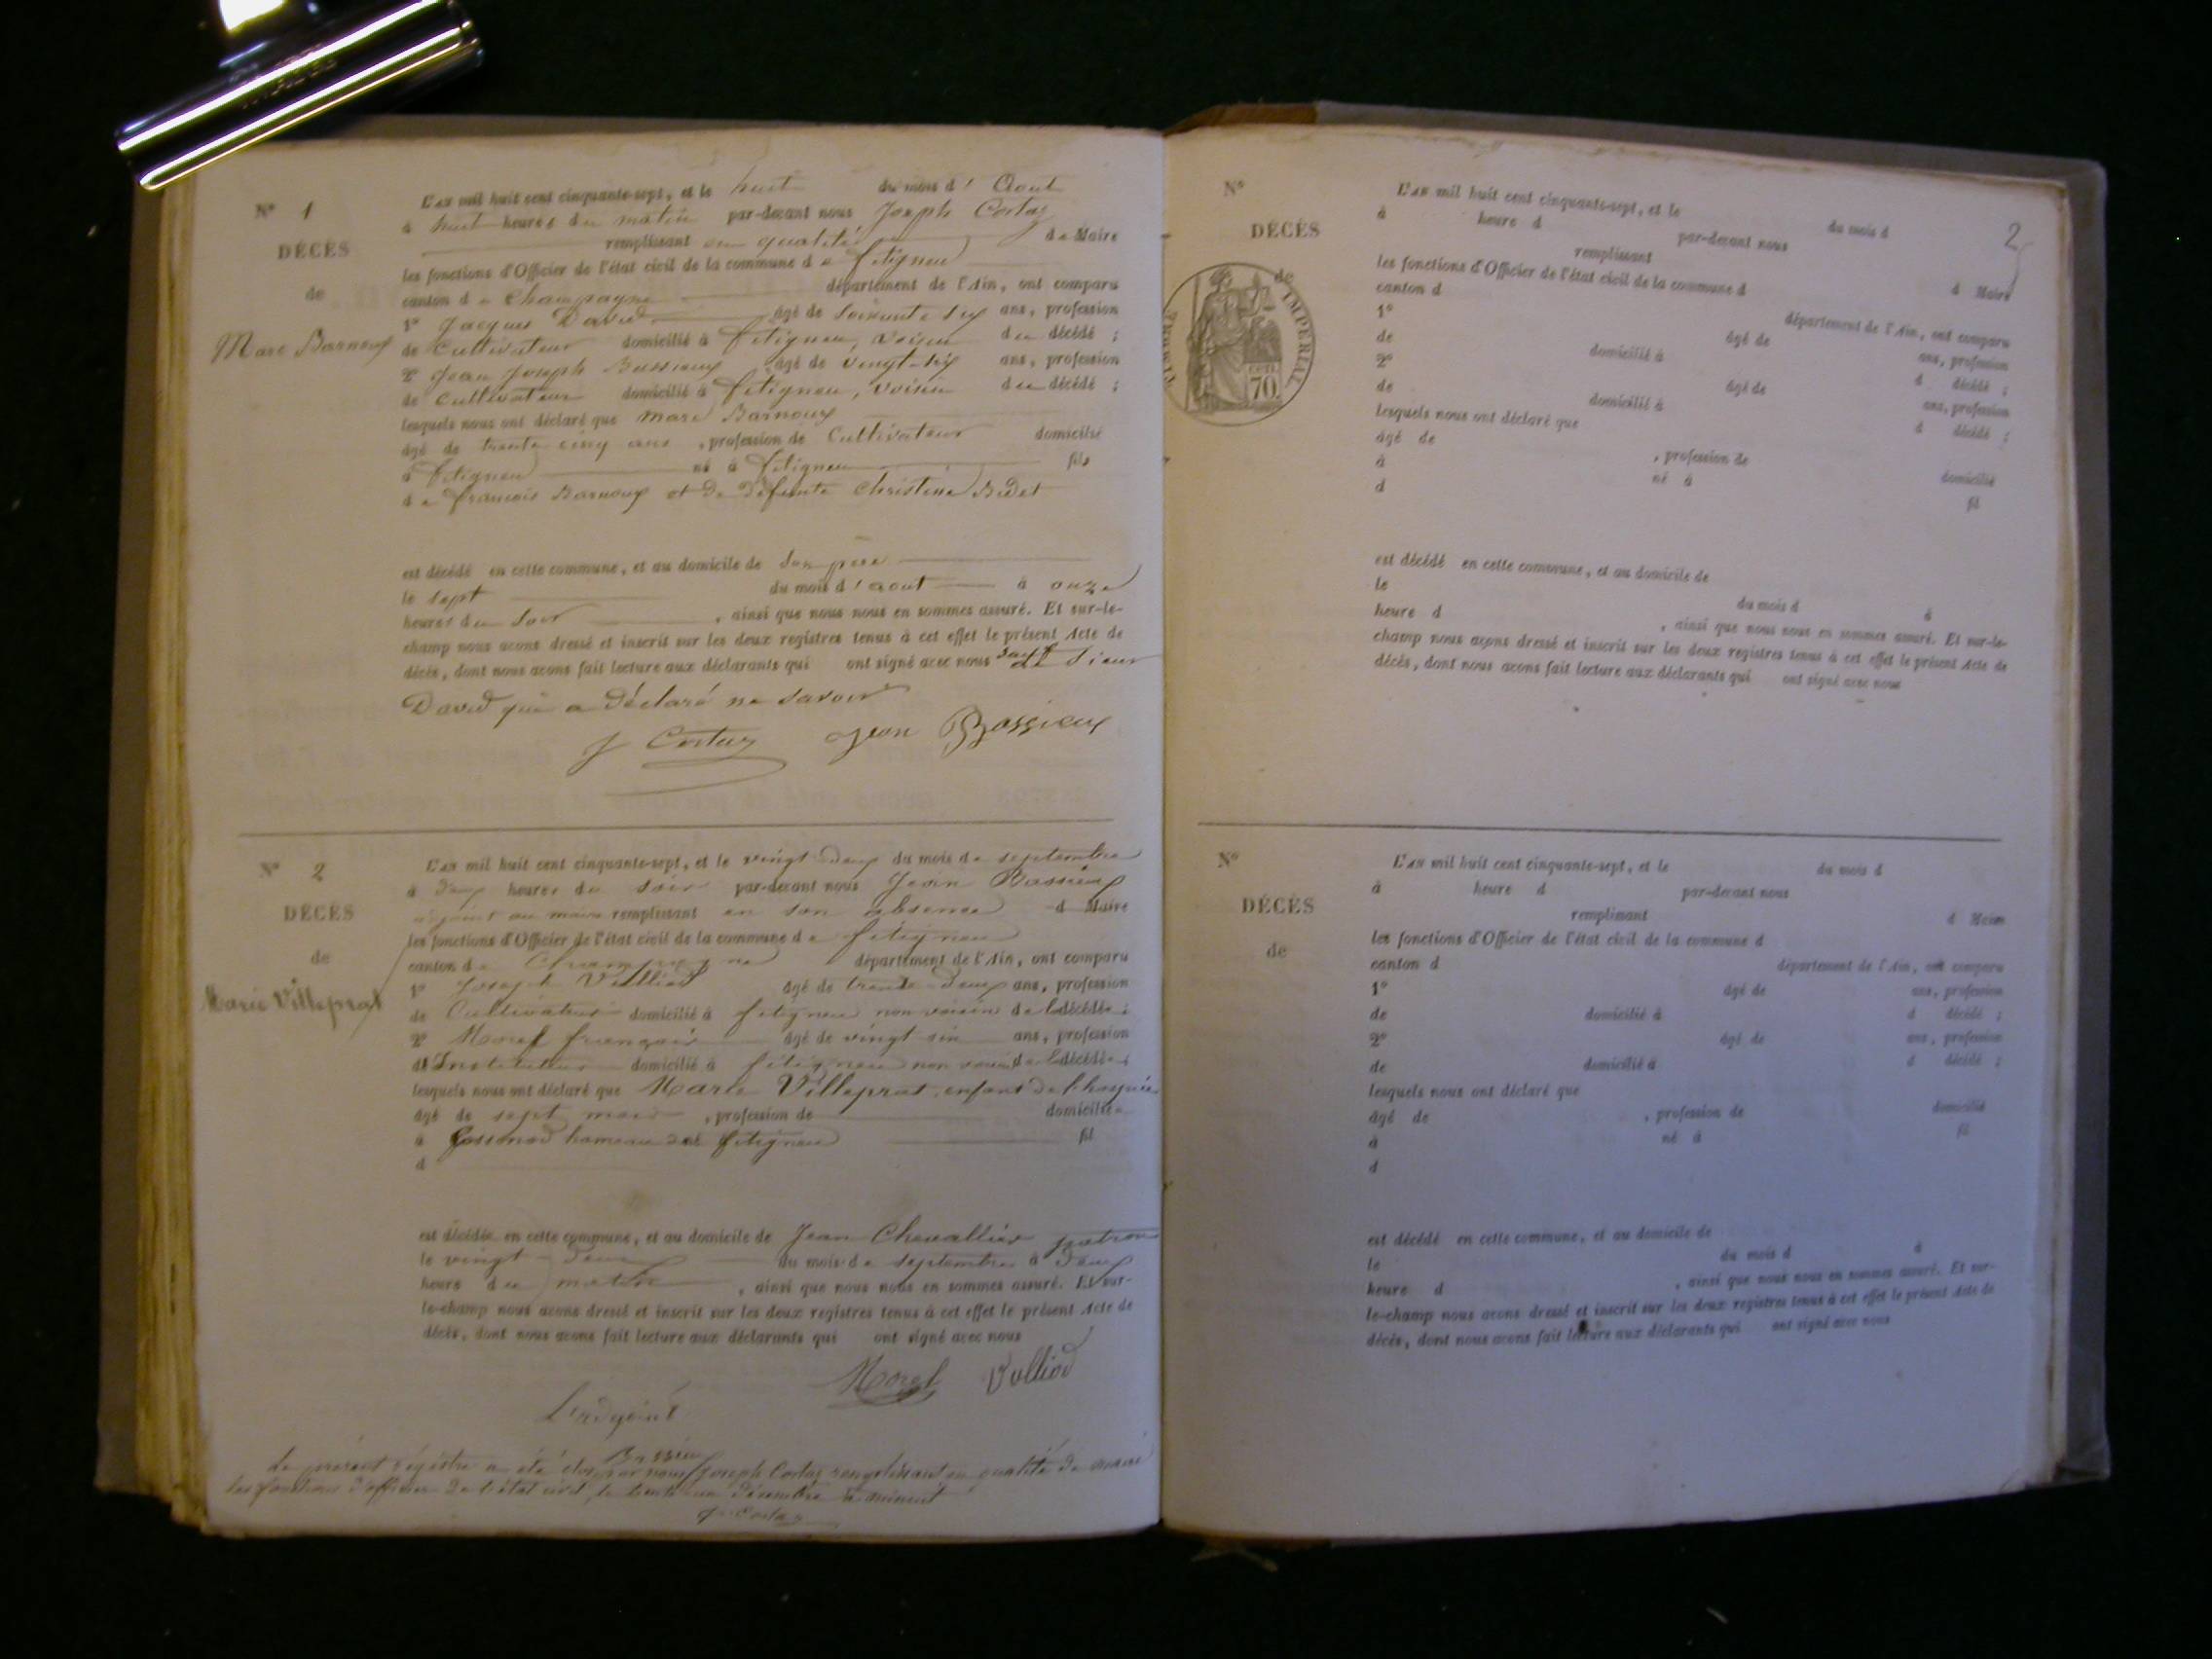 N° 1
DÉCÈS
de
Marc Barnoux
L'AN mil huit cent cinquante-sept, et le huit du mois d'Aout
à huit heures du matin par-devant nous Joseph Cortaz
remplissant en qualité de Maire
les fonctions d'Officier de l'état civil de la commune de fitignieu
canton de Champagne département de l'Ain, ont comparu
1° Jacques David âgé de soixante six ans, profession
de Cultivateur domicilié à fitignieu, voisin du décédé ;
2° Jean Joseph Bassieux âgé de vingt-six ans, profession
de Cultivateur domicilié à fitignieu, voisin du décédé ;
lesquels nous ont déclaré que Marc Barnoux
âgé de trente cinq ans , profession de Cultivateur domicilié
à fitignieu né à fitignieu fils
de francois Barnoux et de défunte Christine Bidet
est décédé en cette commune, et au domicile de son père
le sept du mois d'aout à onze
heures du soir , ainsi que nous nous en sommes assuré. Et sur-le-
champ nous avons dressé et inscrit sur les deux registres tenus à cet effet le présent Acte de
décès, dont nous avons fait lecture aux déclarants qui ont signé avec nous sauf le sieur
David qui a déclaré ne savoir
J Cortaz Jean Bassieux
N° 2
DÉCÈS
de
Marie Villeprat
L'AN mil huit cent cinquante-sept, et le vingt deux du mois de septembre
à deux heures du soir par-devant nous Jean Bassieux
adjoint au maire remplissant en son absence d Maire
les fonctions d'Officier de l'état civil de la commune de fitignieu
canton de Champagne département de l'Ain, ont comparu
1° Joseph Vulliod âgé de trente-deux ans, profession
de Cultivateur domicilié à fitignieu non voisin de la décédée ;
2° Morel françois âgé de vingt six ans, profession
d'Instituteur domicilié à fitignieu non voisin de la décédée ;
lesquels nous ont déclaré que Marie Villeprat, enfant de l'hospice
âgé de sept mois , profession de domiciliée
à hameau de fitignieu fil
d
est décédée en cette commune, et au domicile de Jean Chevallier patron
le vingt deux du mois de septembre à deux
heure du matin , ainsi que nous nous en sommes assuré. Et sur-
le-champ nous avons dressé et inscrit sur les deux registres tenus à cet effet le présent Acte de
décès, dont nous avons fait lecture aux déclarants qui ont signé avec nous
Morel Vulliod
L'adjoint
Bassieux
Le présent régistre a été clos par nous Joseph Cortaz remplissant en qualité de maire
les fonctions d'officier de l'état civil, le trente un décembre à minuit
J. Cortaz
2
N°
DÉCÈS
TIMBRE IMPÉRIAL
CENT. 70.
de
L'AN mil huit cent cinquante-sept, et le du mois d
à heure d par-devant nous
remplissant d Maire
les fonctions d'Officier de l'état civil de la commune d
canton d département de l'Ain, ont comparu
1° âgé de ans, profession
de domicilié à d décédé ;
2° âgé de ans, profession
de domicilié à d décédé ;
lesquels nous ont déclaré que
âgé de , profession de domicilié
à né à fil
d
est décédé en cette commune, et au domicile de
le du mois d à
heure d , ainsi que nous nous en sommes assuré. Et sur-le-
champ nous avons dressé et inscrit sur les deux registres tenus à cet effet le présent Acte de
décès, dont nous avons fait lecture aux déclarants qui ont signé avec nous
N°
DÉCÈS
de
L'AN mil huit cent cinquante-sept, et le du mois d
à heure d par-devant nous
remplissant d Maire
les fonctions d'Officier de l'état civil de la commune d
canton d département de l'Ain, ont comparu
1° âgé de ans, profession
de domicilié à d décédé ;
2° âgé de ans, profession
de domicilié à d décédé ;
lesquels nous ont déclaré que
âgé de , profession de domicilié
à né à fil
d
est décédé en cette commune, et au domicile de
le du mois d à
heure d , ainsi que nous nous en sommes assuré. Et sur-
le-champ nous avons dressé et inscrit sur les deux registres tenus à cet effet le présent Acte de
décès, dont nous avons fait lecture aux déclarants qui ont signé avec nous